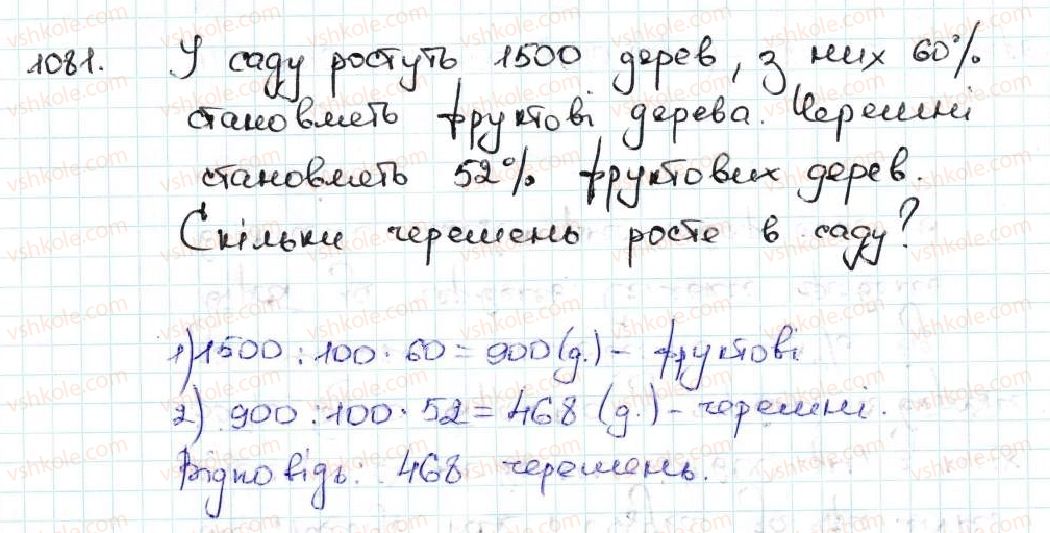 1081. У саду ростуть 1500 дерев, з них 60%
становлять фруктові дерева. Черешні
становлять 52% фруктових дерев.
Скільки черешень росте в саду?
1) 1500 : 100 · 60 = 900 (д.) - фруктові
2) 900 : 100 · 52 = 468 (д.) - черешні.
Відповідь: 468 черешень.